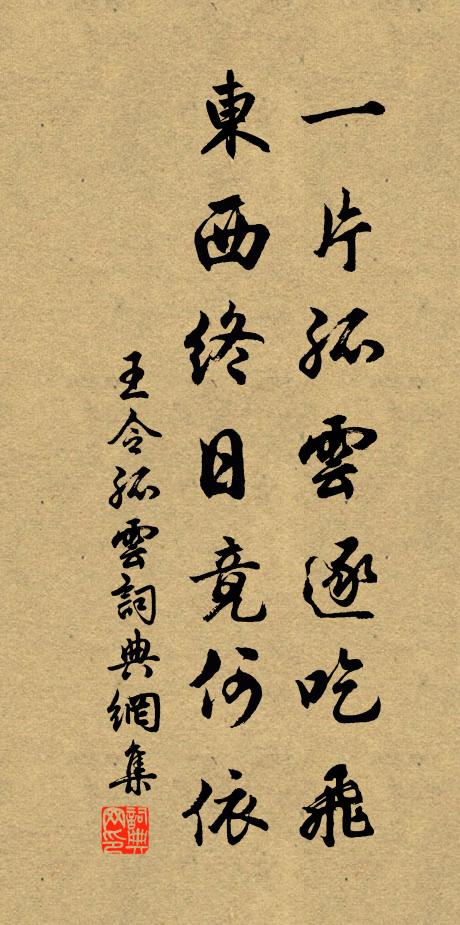 一片孤雲逐吃飛
東西終日竟何依
王令孤雲詞典網集
詞典網印